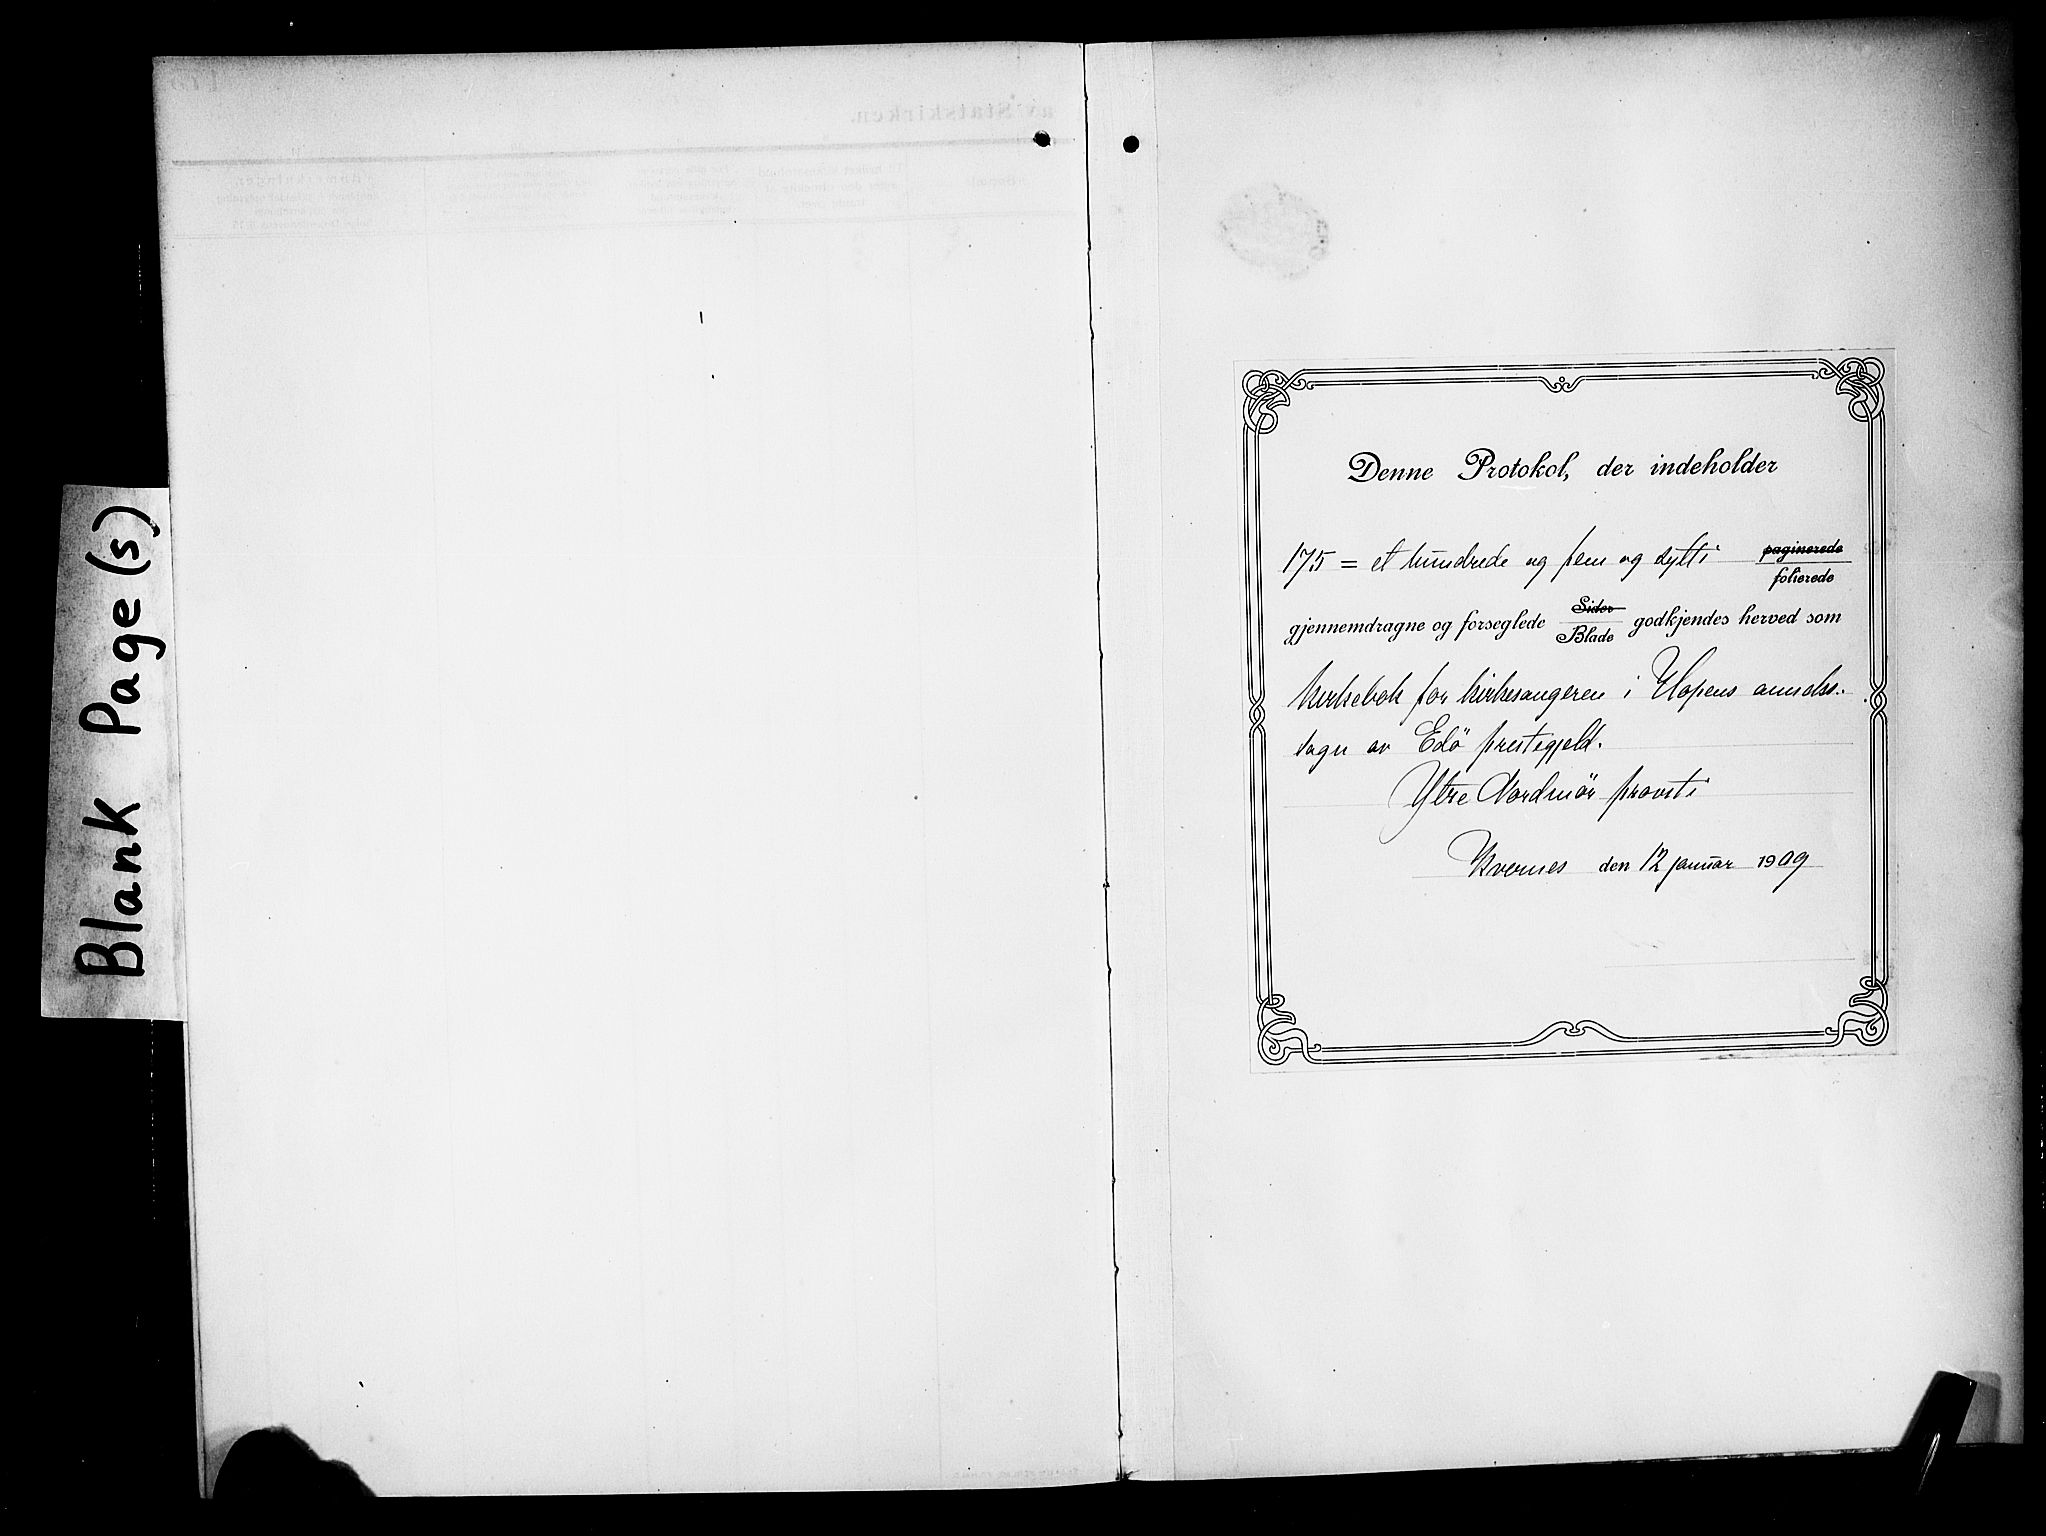 Blank Page(s)
av Statskirken.
Denne Protokol, der indeholder
175 = et hundrede og fem og sytti paginerede
folierede
gjennemdragne og forseglede Sider godkjendes herved som
Blade
kirkebok for kirkesangeren i Hopens anneks-
sogn av Edö prestegjeld.
Ytre Nordmör provsti
Kvernes den 12 januar 1909